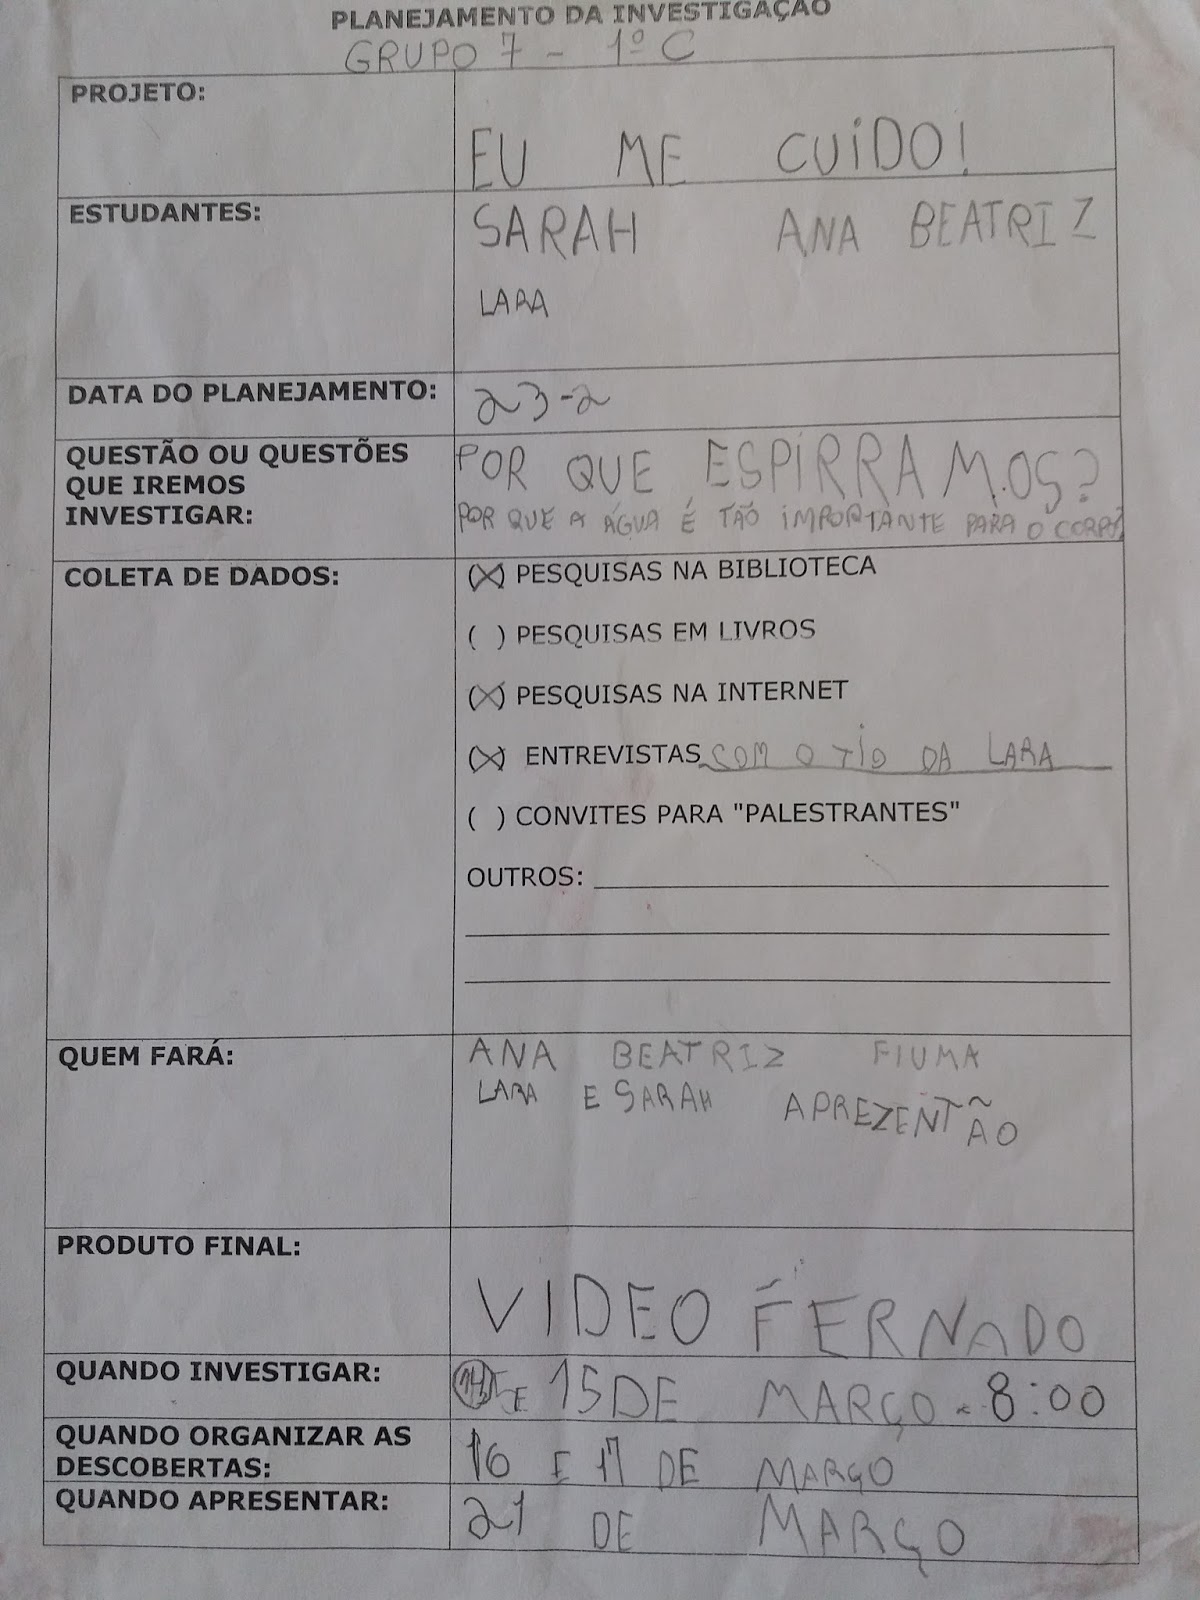 PLANEJAMENTO DA INVESTIGAÇÃO
GRUPO 7 - 1º C
PROJETO:
EU ME CUIDO!
ESTUDANTES:
SARAH ANA BEATRIZ
LARA
DATA DO PLANEJAMENTO:
23-2
QUESTÃO OU QUESTÕES
QUE IREMOS
INVESTIGAR:
POR QUE ESPIRRAMOS?
POR QUE A ÁGUA É TÃO IMPORTANTE PARA O CORPO?
COLETA DE DADOS:
(X) PESQUISAS NA BIBLIOTECA
( ) PESQUISAS EM LIVROS
(X) PESQUISAS NA INTERNET
(X) ENTREVISTAS COM O TIO DA LARA
( ) CONVITES PARA "PALESTRANTES"
OUTROS:
QUEM FARÁ:
ANA BEATRIZ FIUMA
LARA E SARAH APREZENTÃO
PRODUTO FINAL:
VIDEO FERNADO
QUANDO INVESTIGAR:
E 15 DE MARÇO - 8:00
QUANDO ORGANIZAR AS
DESCOBERTAS:
16 E 17 DE MARÇO
QUANDO APRESENTAR:
21 DE MARÇO